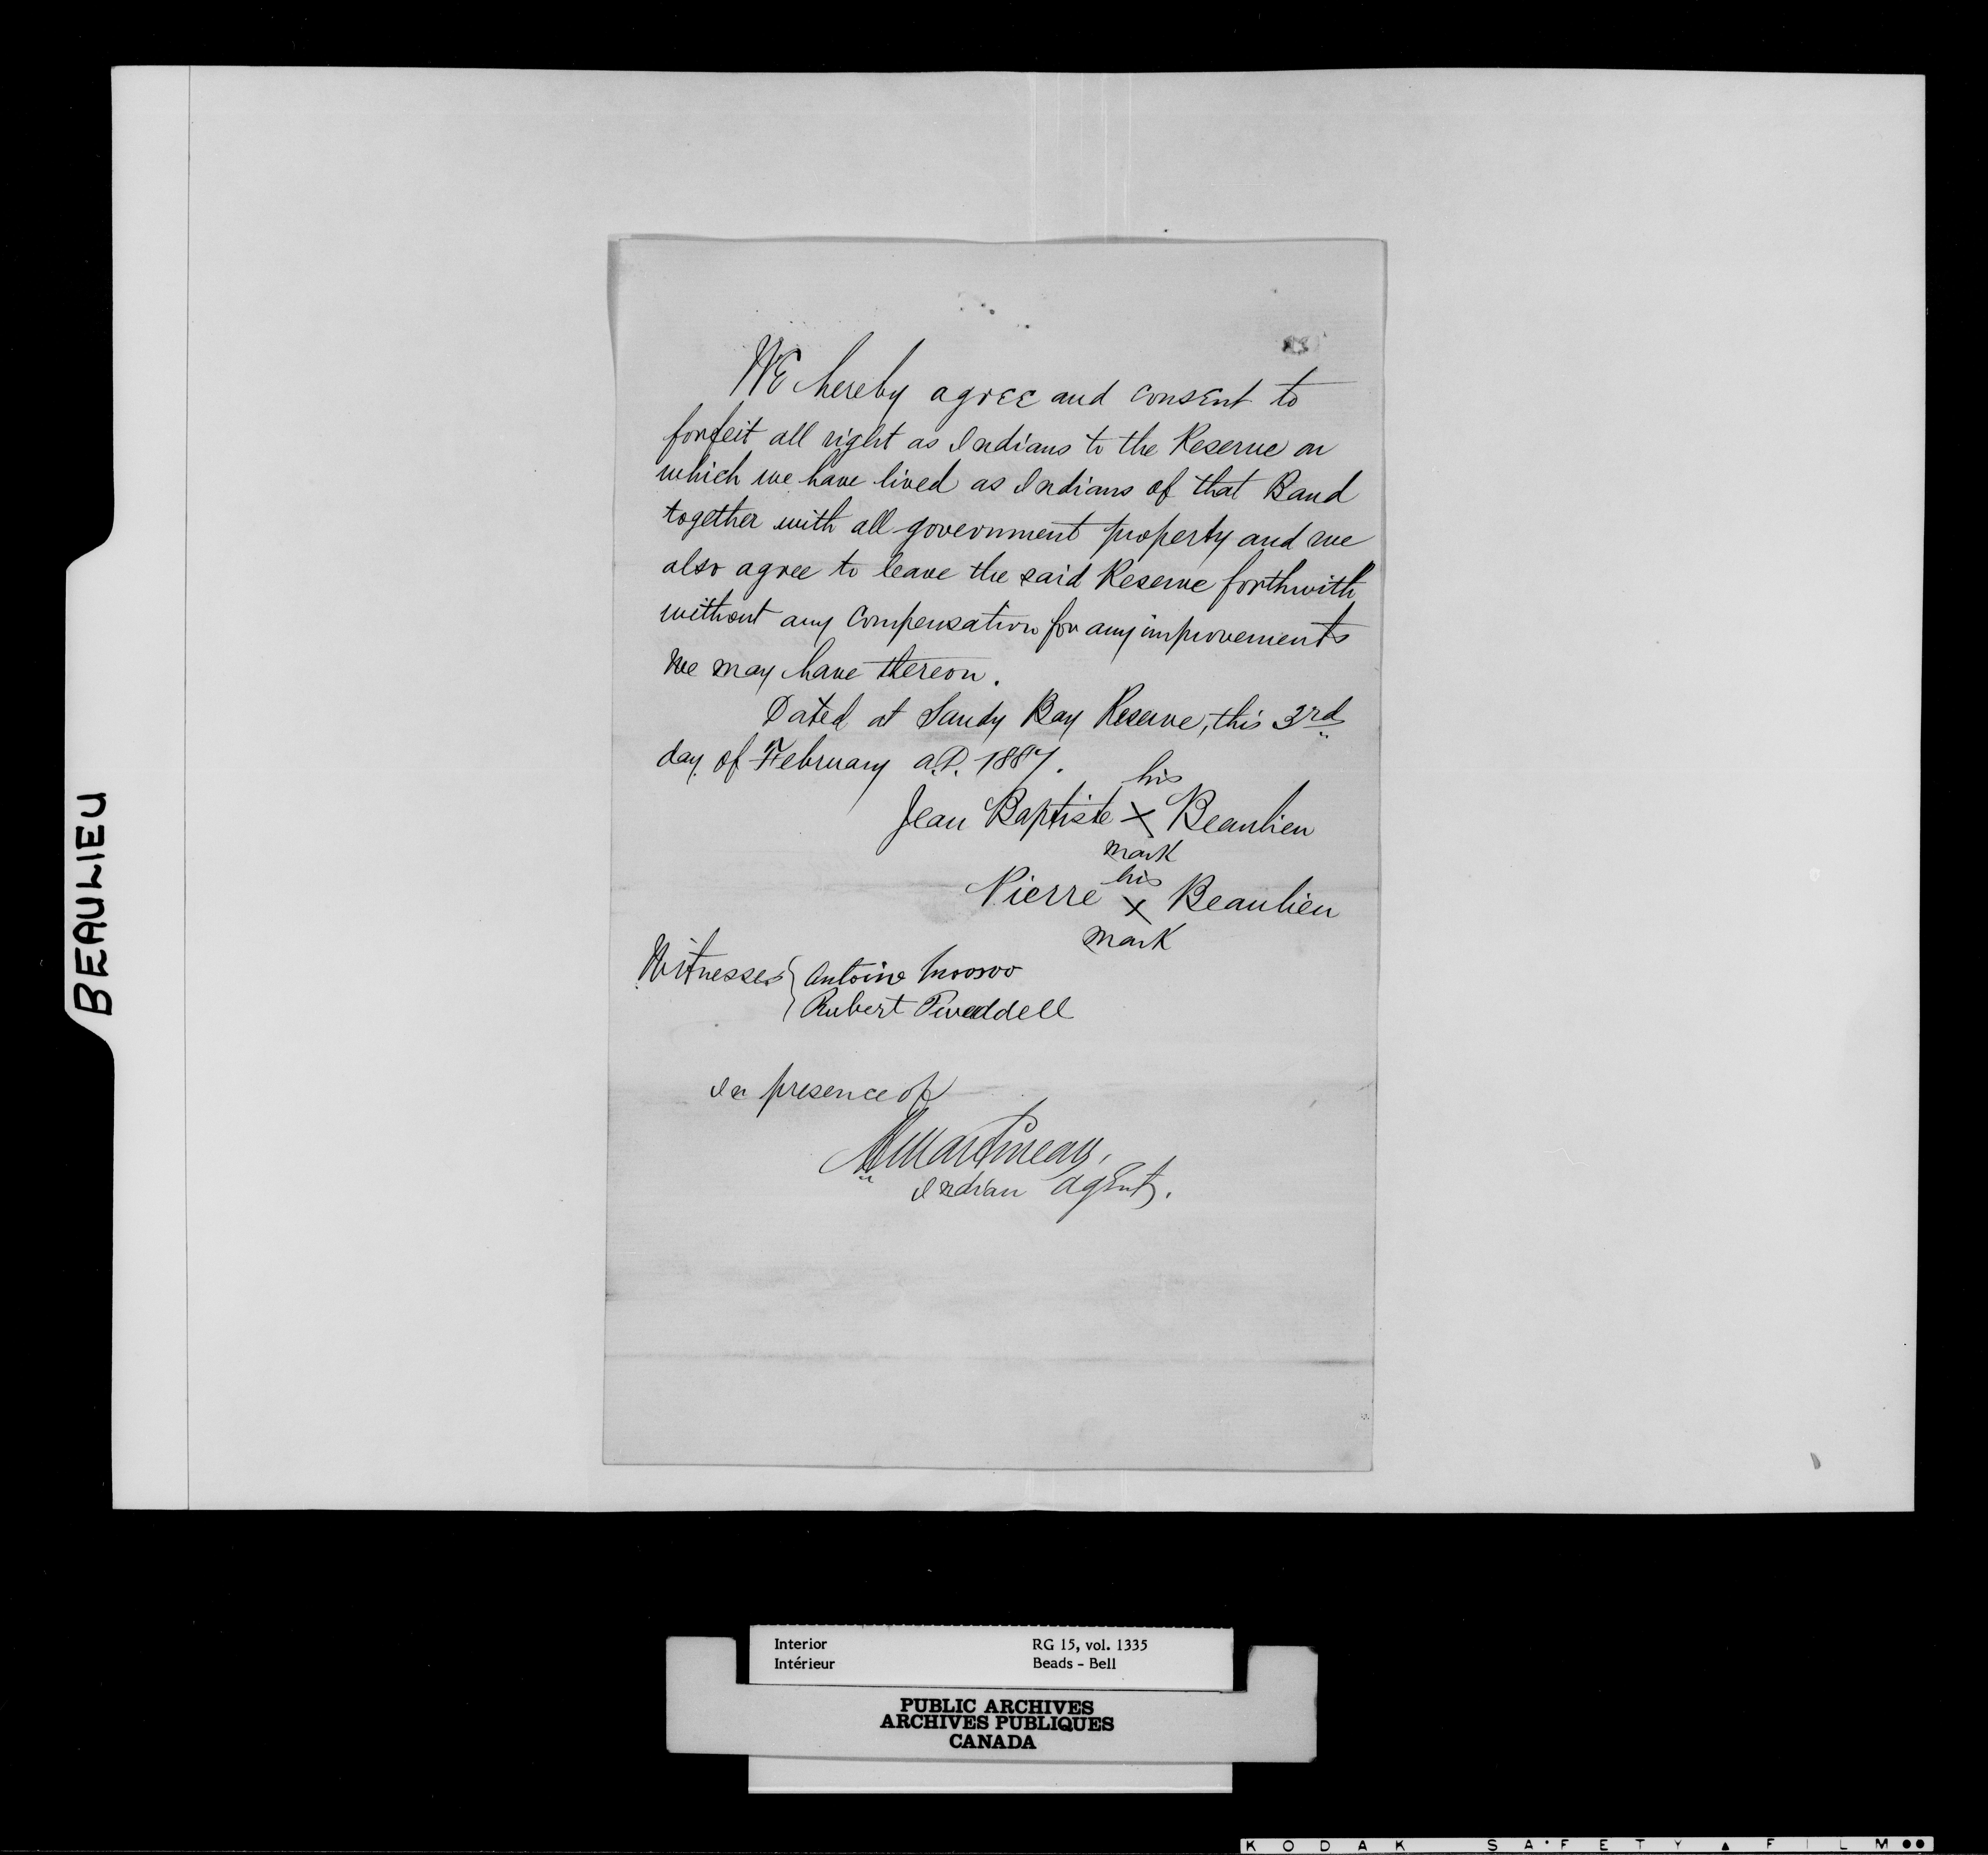 WE hereby agree and consent to
forfeit all right as Indians to the Reserve on
which we have lived as Indians of that Band
together with all government property and we
also agree to leave the said Reserve forthwith
without any compensation for any improvements
we may have thereon.
Dated at Sandy Bay Reserve, this 3rd
day of February a.D. 1887.
his
Jean Baptiste X Beaulieu
mark
his
Pierre X Beaulieu
mark
Witnesses { Antoine Mooswo
Robert Tweddell
In presence of
H Martineau,
Indian Agent.
BEAULIEU
Interior RG 15, vol. 1335
Intérieur Beads - Bell
PUBLIC ARCHIVES
ARCHIVES PUBLIQUES
CANADA
KODAK SA•FETY ▲ FILM ●●